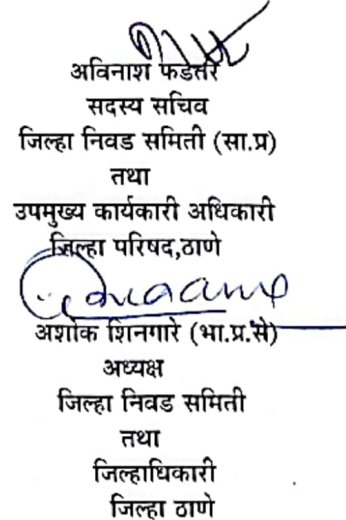 अविनाश फडतरे
सदस्य सचिव
जिल्हा निवड समिती (सा.प्र)
तथा
उपमुख्य कार्यकारी अधिकारी
जिल्हा परिषद,ठाणे
अशोक शिनगारे (भा.प्र.से)
अध्यक्ष
जिल्हा निवड समिती
तथा
जिल्हाधिकारी
जिल्हा ठाणे